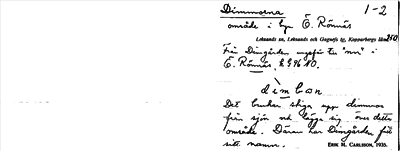 Dimmorna 1-2
område i byn Ö. Rönnäs
Leksands sn, Leksands och Gagnefs tg, Kopparbergs län 250
Från Dimgården ungefär till "mor" i
Ö. Rönnäs, kg 9640.
dimban
Det brukar stiga upp dimmor
från sjön och lägga sig över detta
område. Därav har Dimgården fått
sitt namn. ERIK H. CARLSSON, 1935.